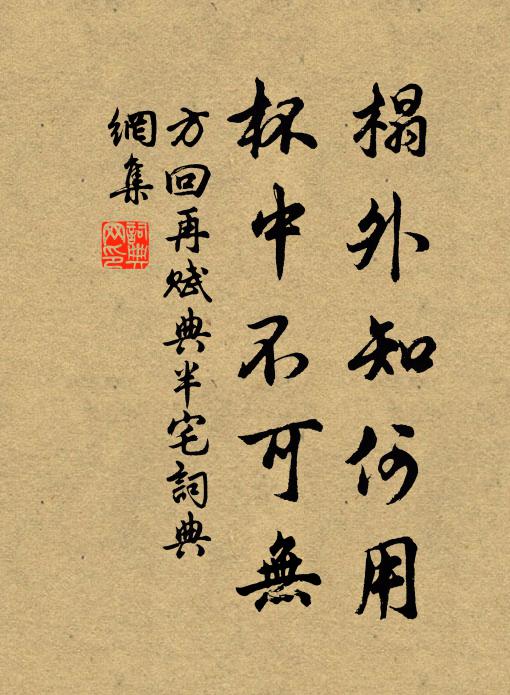 榻外知何用
杯中不可無
方回再賦典半宅詞典
網集
詞典網印